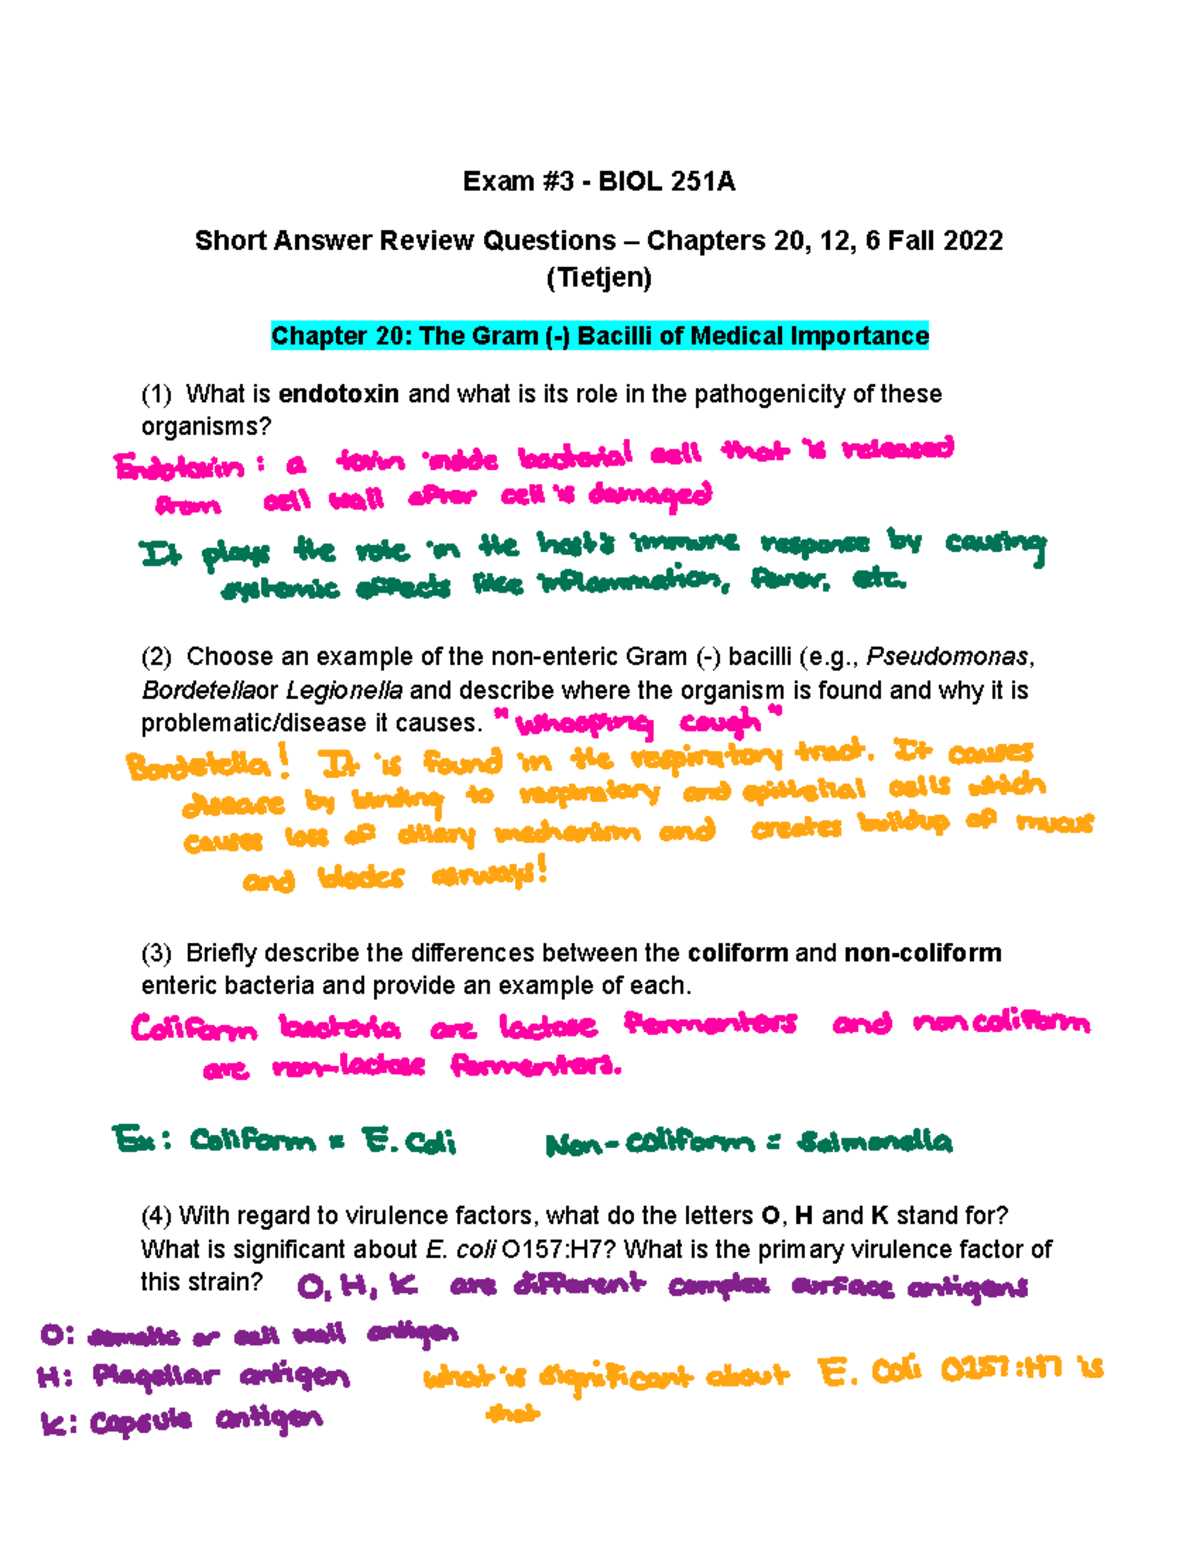 Exam #3 - BIOL 251A
Short Answer Review Questions – Chapters 20, 12, 6 Fall 2022
(Tietjen)
Chapter 20: The Gram (-) Bacilli of Medical Importance
(1) What is endotoxin and what is its role in the pathogenicity of these
organisms?
Endotoxin: a toxin inside bacterial cell that is released
from cell wall after cell is damaged
It plays the role in the host's immune response by causing
systemic effects like inflammation, fever, etc.
(2) Choose an example of the non-enteric Gram (-) bacilli (e.g., Pseudomonas,
Bordetellaor Legionella and describe where the organism is found and why it is
problematic/disease it causes. "Whooping cough"
Bordetella! It is found in the respiratory tract. It causes
disease by binding to respiratory and epithelial cells which
causes loss of cilary mechanism and creates buildup of mucus
and blocks airways!
(3) Briefly describe the differences between the coliform and non-coliform
enteric bacteria and provide an example of each.
Coliform bacteria are lactose fermentors and non coliform
are non-lactose fermentors.
Ex: Coliform = E. Coli Non-coliform = Salmonella
(4) With regard to virulence factors, what do the letters O, H and K stand for?
What is significant about E. coli O157:H7? What is the primary virulence factor of
this strain? O, H, K are different complex surface antigens
O: somatic or cell wall antigen
H: Flagellar antigen what is significant about E. Coli O157:H7 is
K: Capsule antigen that